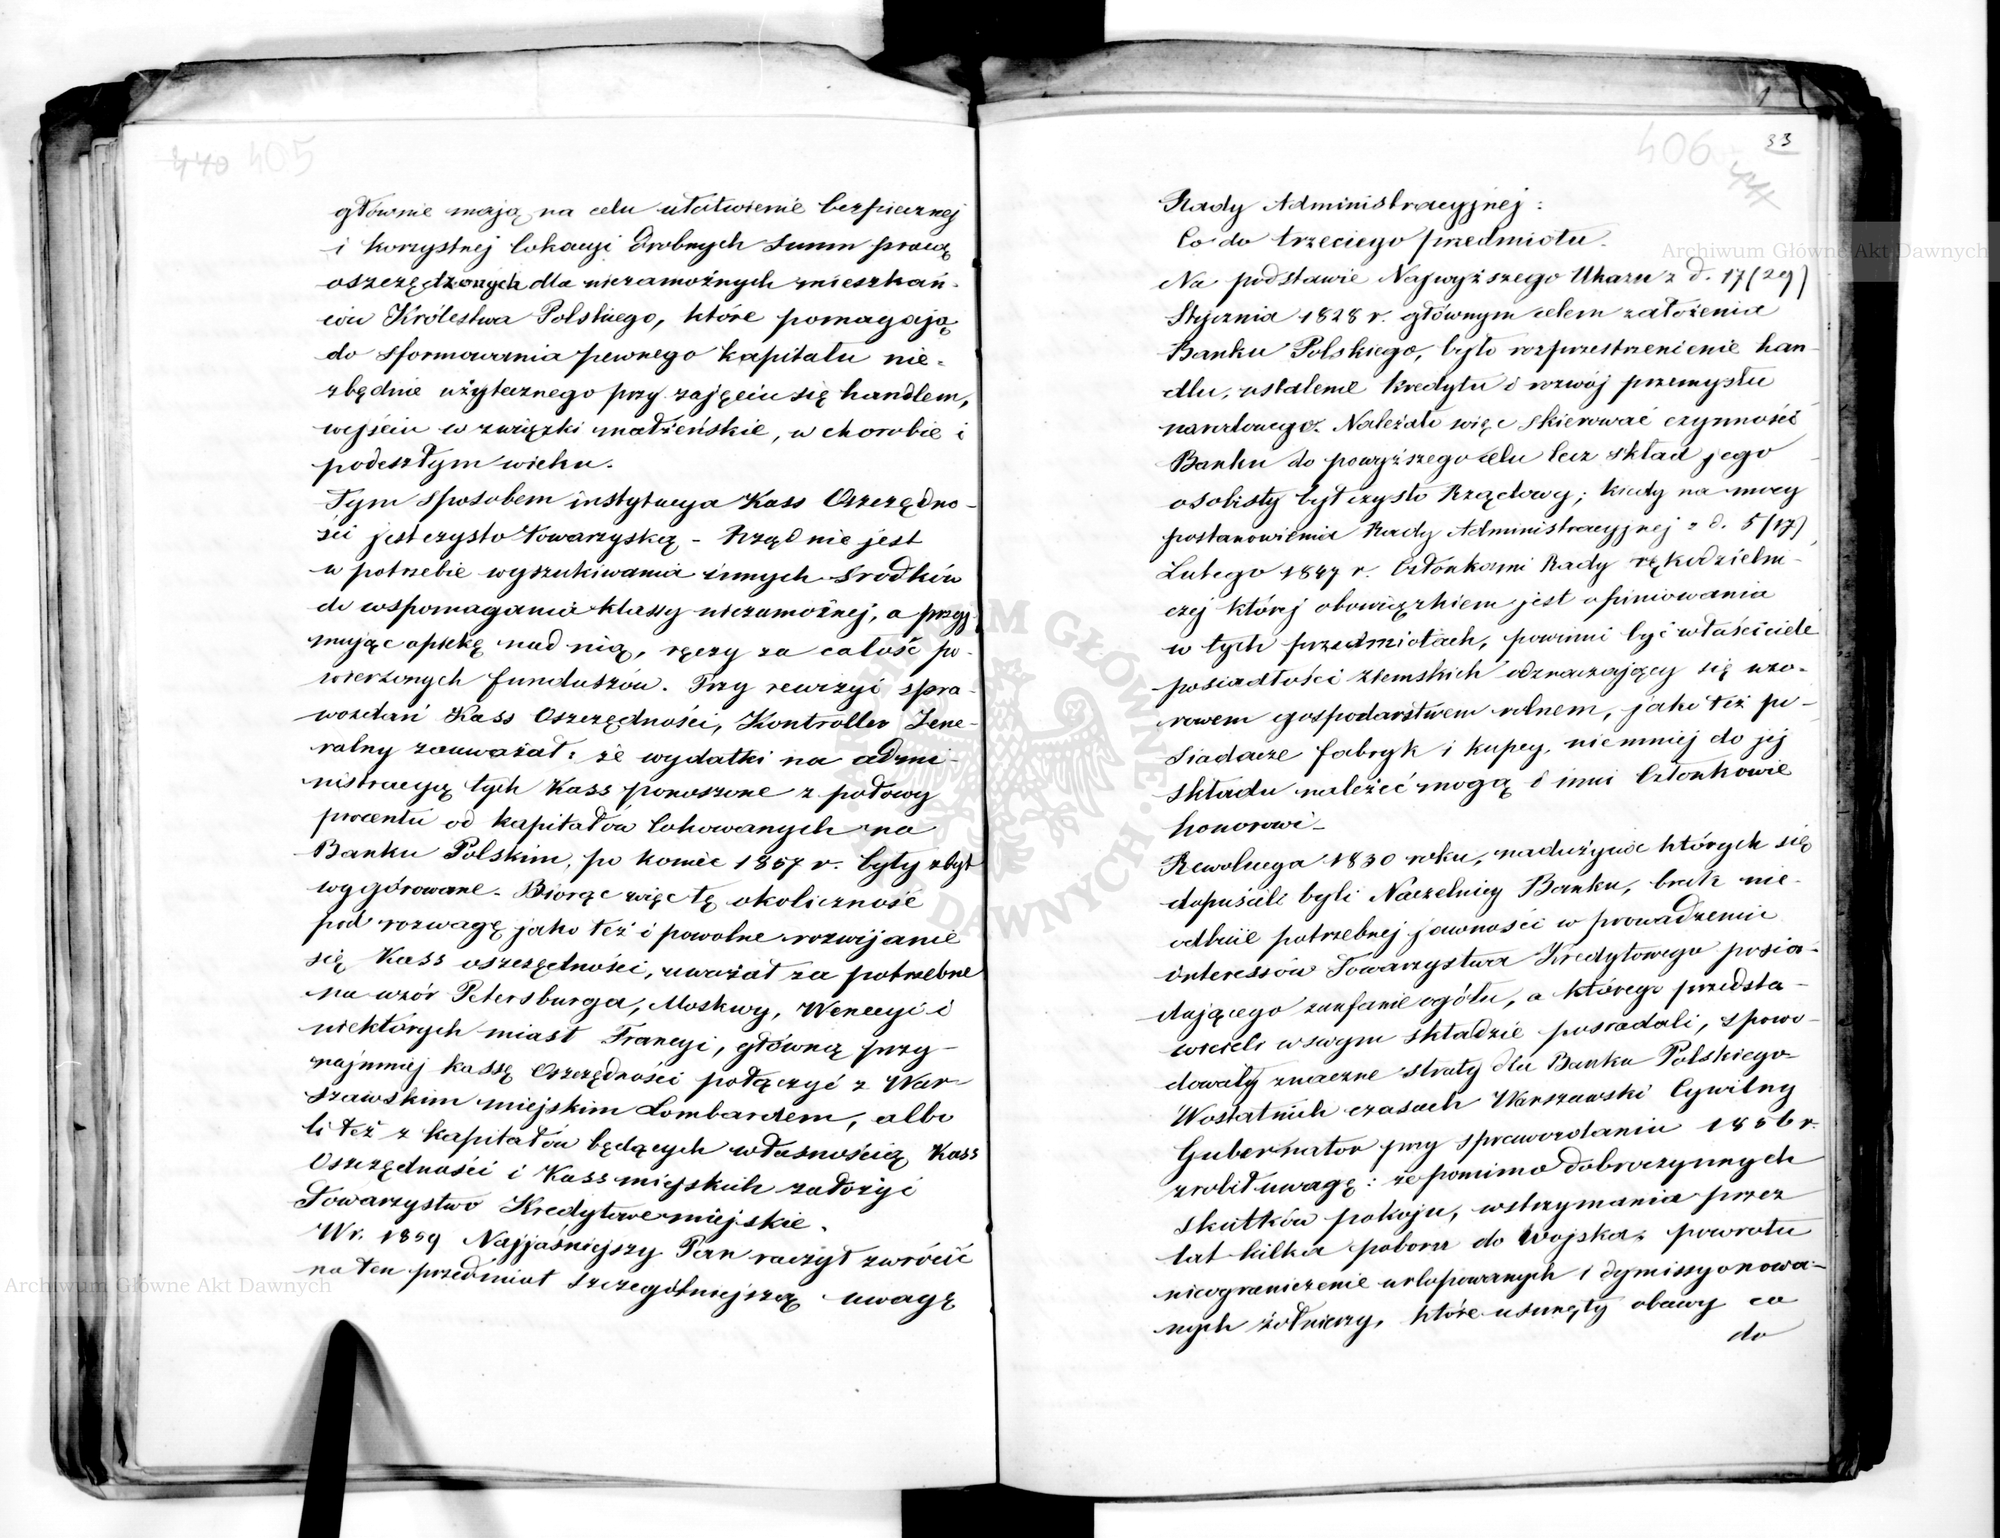 440 405
głównie mają na celu ułatwienie bezpiecznej
i korzystnej lokacyi drobnych summ pracą
oszczędzonych dla niezamożnych mieszkań-
ców Królestwa Polskiego, które pomagają
do sformowania pewnego kapitału nie-
zbędnie użytecznego przy zajęciu się handlem,
wejściu w związki małżeńskie, w chorobie i
podeszłym wieku.
Tym sposobem instytucya Kass Oszczędno-
ści jest czysto towarzyską - Rząd nie jest
w potrzebie wyszukiwania innych środków
do wspomagania klassy niezamożnej, a przyj-
mując opiekę nad nią, ręczy za całość po-
wierzonych funduszów. Przy rewizyi spra-
wozdań Kass Oszczędności, Kontroller Jene-
ralny zauważał: że wydatki na admi-
nistracyą tych Kass ponoszone z połowy
procentu od kapitałów lokowanych na
Banku Polskim, po koniec 1857 r. były zbyt
wygórowane. Biorąc więc tę okoliczność
pod rozwagę jako też i powolne rozwijanie
się Kass oszczędności, uważał za potrzebne
na wzór Petersburga, Moskwy, Wenecyi i
niektórych miast Francyi, główną przy-
najmniej kassę Oszczędności połączyć z War-
szawskim miejskim Lombardem, albo
li też z kapitałów będących własnością Kass
Oszczędności i Kass miejskich założyć
Towarzystwo Kredytowe miejskie.
W r. 1859 Najjaśniejszy Pan raczył zwrócić
na ten przedmiot szczególniejszą uwagę
406 33
Rady Administracyjnej:
Co do trzeciego przedmiotu.
Na podstawie Najwyższego Ukazu z d. 17/29)
Stycznia 1828 r. głównym celem założenia
Banku Polskiego, było rozprzestrzenienie han-
dlu, ustalenie kredytu i rozwój przemysłu
narodowego. Należało więc skierować czynności
Banku do powyższego celu lecz skład jego
osobisty był czysto Rządowy; kiedy na mocy
postanowienia Rady Administracyjnej z d. 5/17)
Lutego 1847 r. Członkami Rady rękodzielni-
czej której obowiązkiem jest opiniowania
w tych przedmiotach, powinni być właściciele
posiadłości ziemskich odznaczający się wzo-
rowem gospodarstwem rolnem, jako też po-
siadacze fabryk i kupcy, niemniej do jej
składu należeć mogą i inni Członkowie
honorowi -
Rewolucya 1830 roku, nadużycie których się
dopuścili byli Naczelnicy Banku, brak nie-
odbicie potrzebnej jawności w prowadzeniu
interessów Towarzystwa Kredytowego posia-
dającego zaufanie ogółu, a którego przedsta-
wicieli w swym składzie posiadali, spowo-
dowały znaczne straty dla Banku Polskiego
W ostatnich czasach Warszawski Cywilny
Gubernator przy sprawozdaniu 1856 r.
zrobił uwagę: że pomimo dobroczynnych
skutków pokoju, wstrzymania przez
lat kilka poboru do Wojska, powrotu
nieograniczenie urlopowanych i dymissyonowa-
nych żołnierzy, które usunęły obawy co
do
Archiwum Główne Akt Dawnych
Archiwum Główne Akt Dawnych